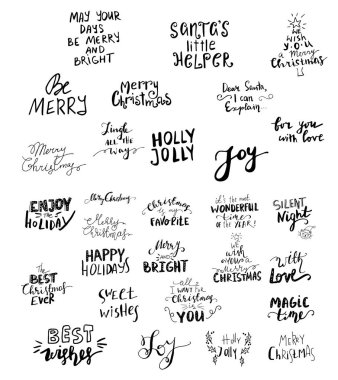 MAY YOUR
DAYS
BE MERRY
AND
BRIGHT
SANTA'S
little
HELPER
WE
WISH
Y.O.U
a Merry
Christmas
Be
MERRY
Merry
Christmas
Dear Santa,
I can
Explain...
Merry
Christmas
Jingle
ALL THE
Way
HOLLY
JOLLY
Joy
for you
with love
ENJOY
the
HOLIDAY
Merry Christmas
Merry
Christmas
Christmas
is my
FAVORITE
it's the most
WONDERFUL
time
OF THE YEAR!
SILENT
Night
The
BEST
Christmas
EVER
HAPPY
HOLIDAYS
Merry
AND
BRIGHT
We
wish
YOU a
Merry
CHRISTMAS
with
Love
sweet
wishes
all
I WANT for
Christmas
is
YOU
MAGIC
time
BEST
wishes
Joy
Holly
Jolly
MERRY
CHRISTMAS